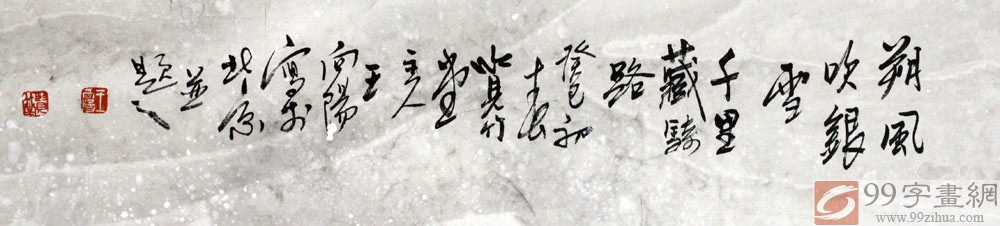 朔風
吹銀
雪
千里
藏騎
路
癸巳初
竹
堂
主人
王
向陽
寫於
北京
並
題之
99字畫網
www.99zihua.com